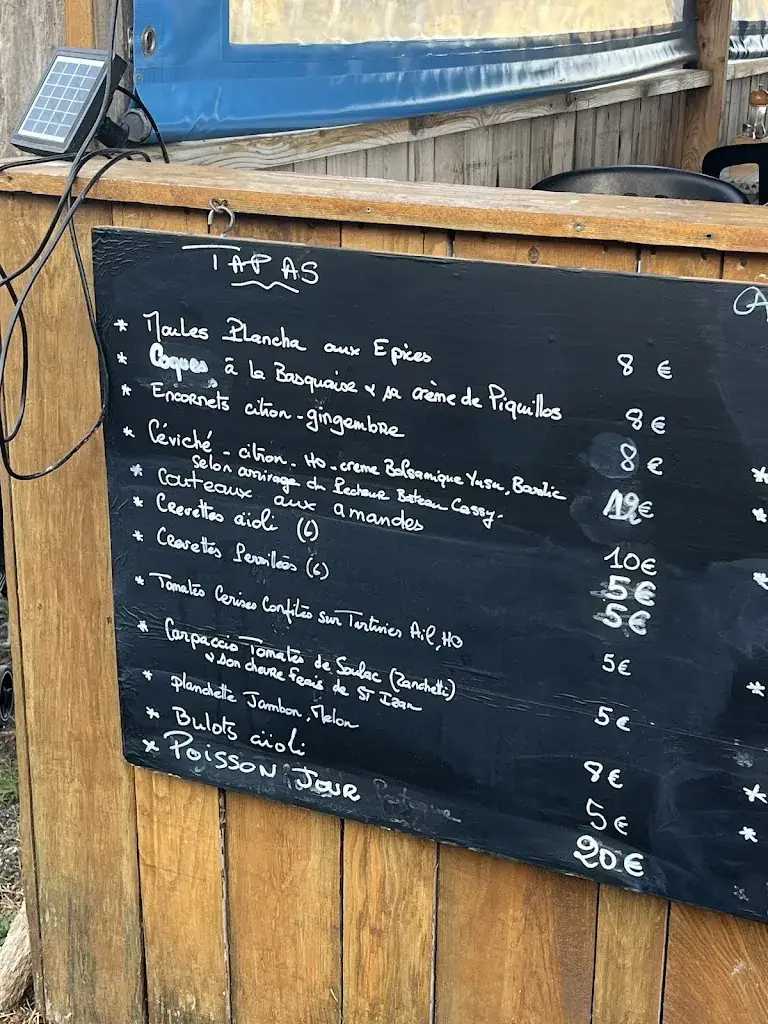 TAPAS
* Moules Plancha aux Epices 8 €
* Coques à la Basquaise & sa crème de Piquillos 8 €
* Encornets citron-gingembre 8 €
* Céviché - citron - HO - creme Balsamique Yusu, Basilic 12€
selon arrivage du Pecheur Bateau Cassy.
* Couteaux aux amandes 10€
* Crevettes aïoli (6) 5€
* Crevettes Persillées (6) 5€
* Tomates Cerises Confites sur Tartines Ail, HO 5€
* Carpaccio Tomates de Soulac (Zanchetti) 5€
& son chevre frais de ST Izan
* Planchette Jambon, Melon 8€
* Bulots aïoli 5€
* POISSON JOUR 20€